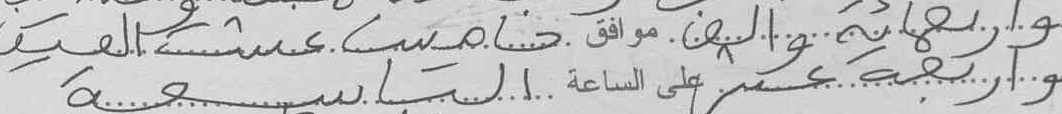 واربعمائة والف. موافق. خامس عشر الفين
واربعة عشر على الساعة التاسعة